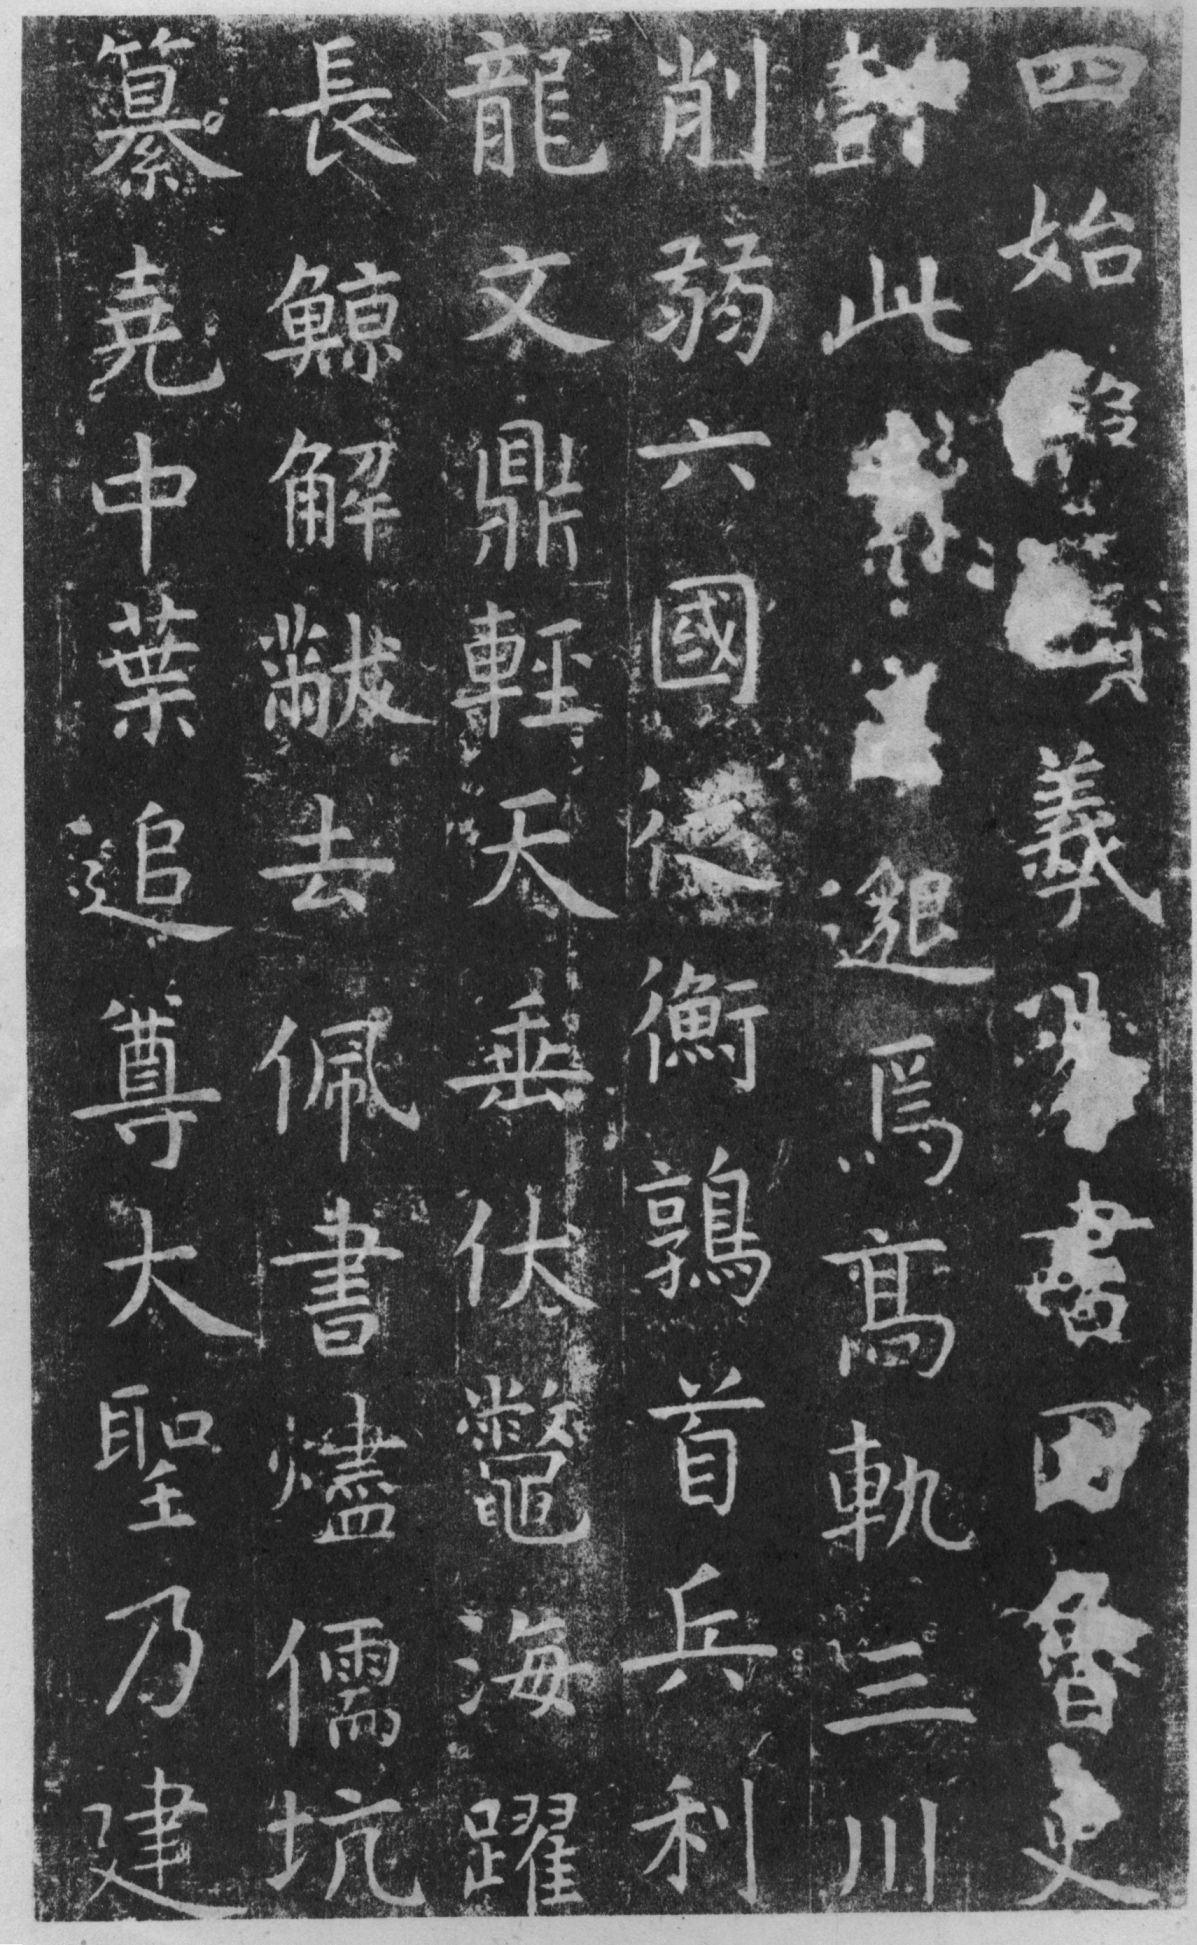 四始義易書因魯史
懿此素王邈焉高軌三川
削弱六國從衡鶉首兵利
龍文鼎輕天垂伏鱉海躍
長鯨解黻去佩書燼儒坑
纂堯中葉追尊大聖乃建